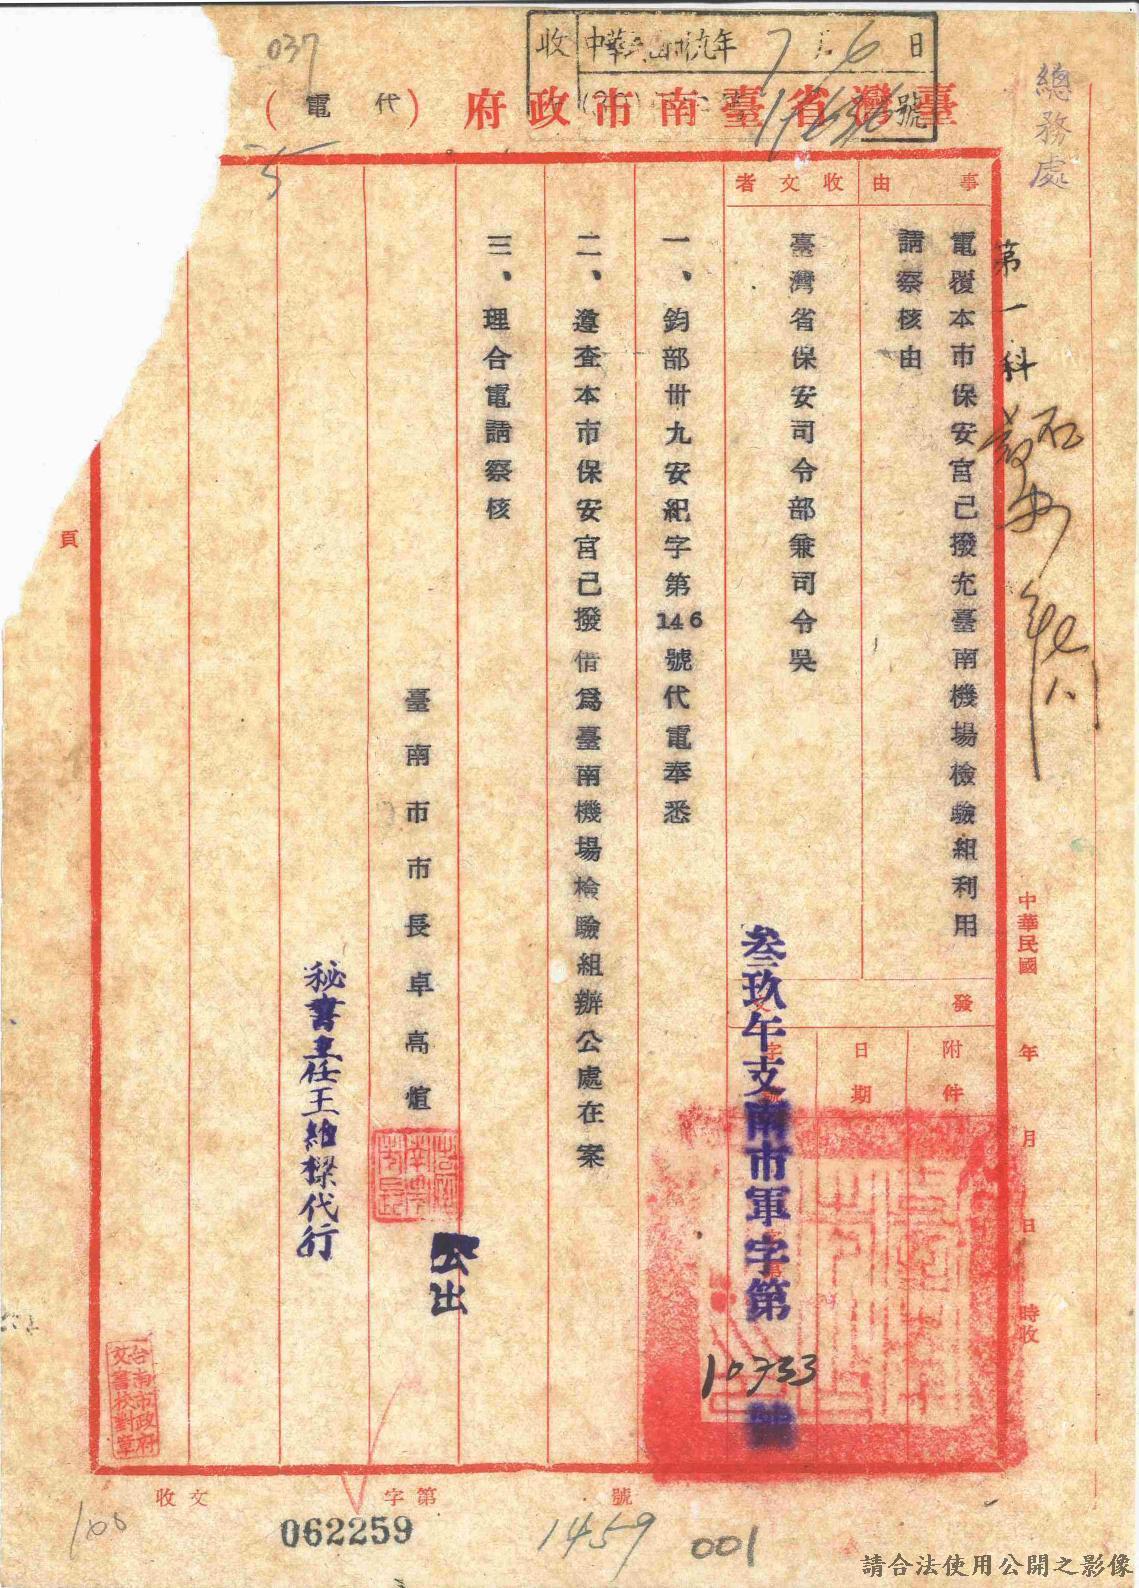 037
收 中華民國卅九年 7 月 6 日
號
臺灣省臺南市政府（代電）
總務處
第一科
事由
收文者
電覆本市保安宮已撥充臺南機場檢驗組利用
請察核由
臺灣省保安司令部兼司令吳
發文
附件
日期
字號
叁玖午支南市軍字第10733號
一、鈞部卅九安紀字第146號代電奉悉
二、遵查本市保安宮已撥借爲臺南機場檢驗組辦公處在案
三、理合電請察核
臺南市市長卓高煊
公出
秘書主任王維樑代行
中華民國 年 月 日 時收
頁
台南市政府
文書校對章
收文 字第 號
100
062259
1459
001
請合法使用公開之影像